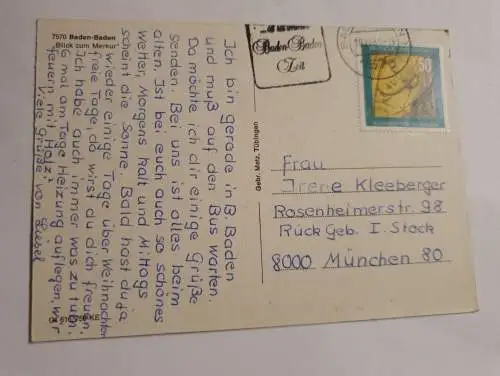 7570 Baden-Baden
"Blick zum Merkur"
Ich bin gerade in B. Baden
und muß auf den Bus warten.
Da möchte ich dir einige Grüße
senden. Bei uns ist alles beim
alten. Ist bei euch auch so schönes
Wetter, Morgens kalt und Mittags
scheint die Sonne. Bald hast du ja
wieder einige Tage über Weihnachten
freie Tage, da wirst du dich freuen.
Ich habe auch immer was zu tun.
6 mal am Tage Heizung auflegen, wir
feuern mit Holz.
Viele Grüße von Liesel
Gebr. Metz, Tübingen
Baden-Baden
Zeit
50
Frau
Irene Kleeberger
Rosenheimerstr. 98
Rück Geb. I. Stock
8000 München 80